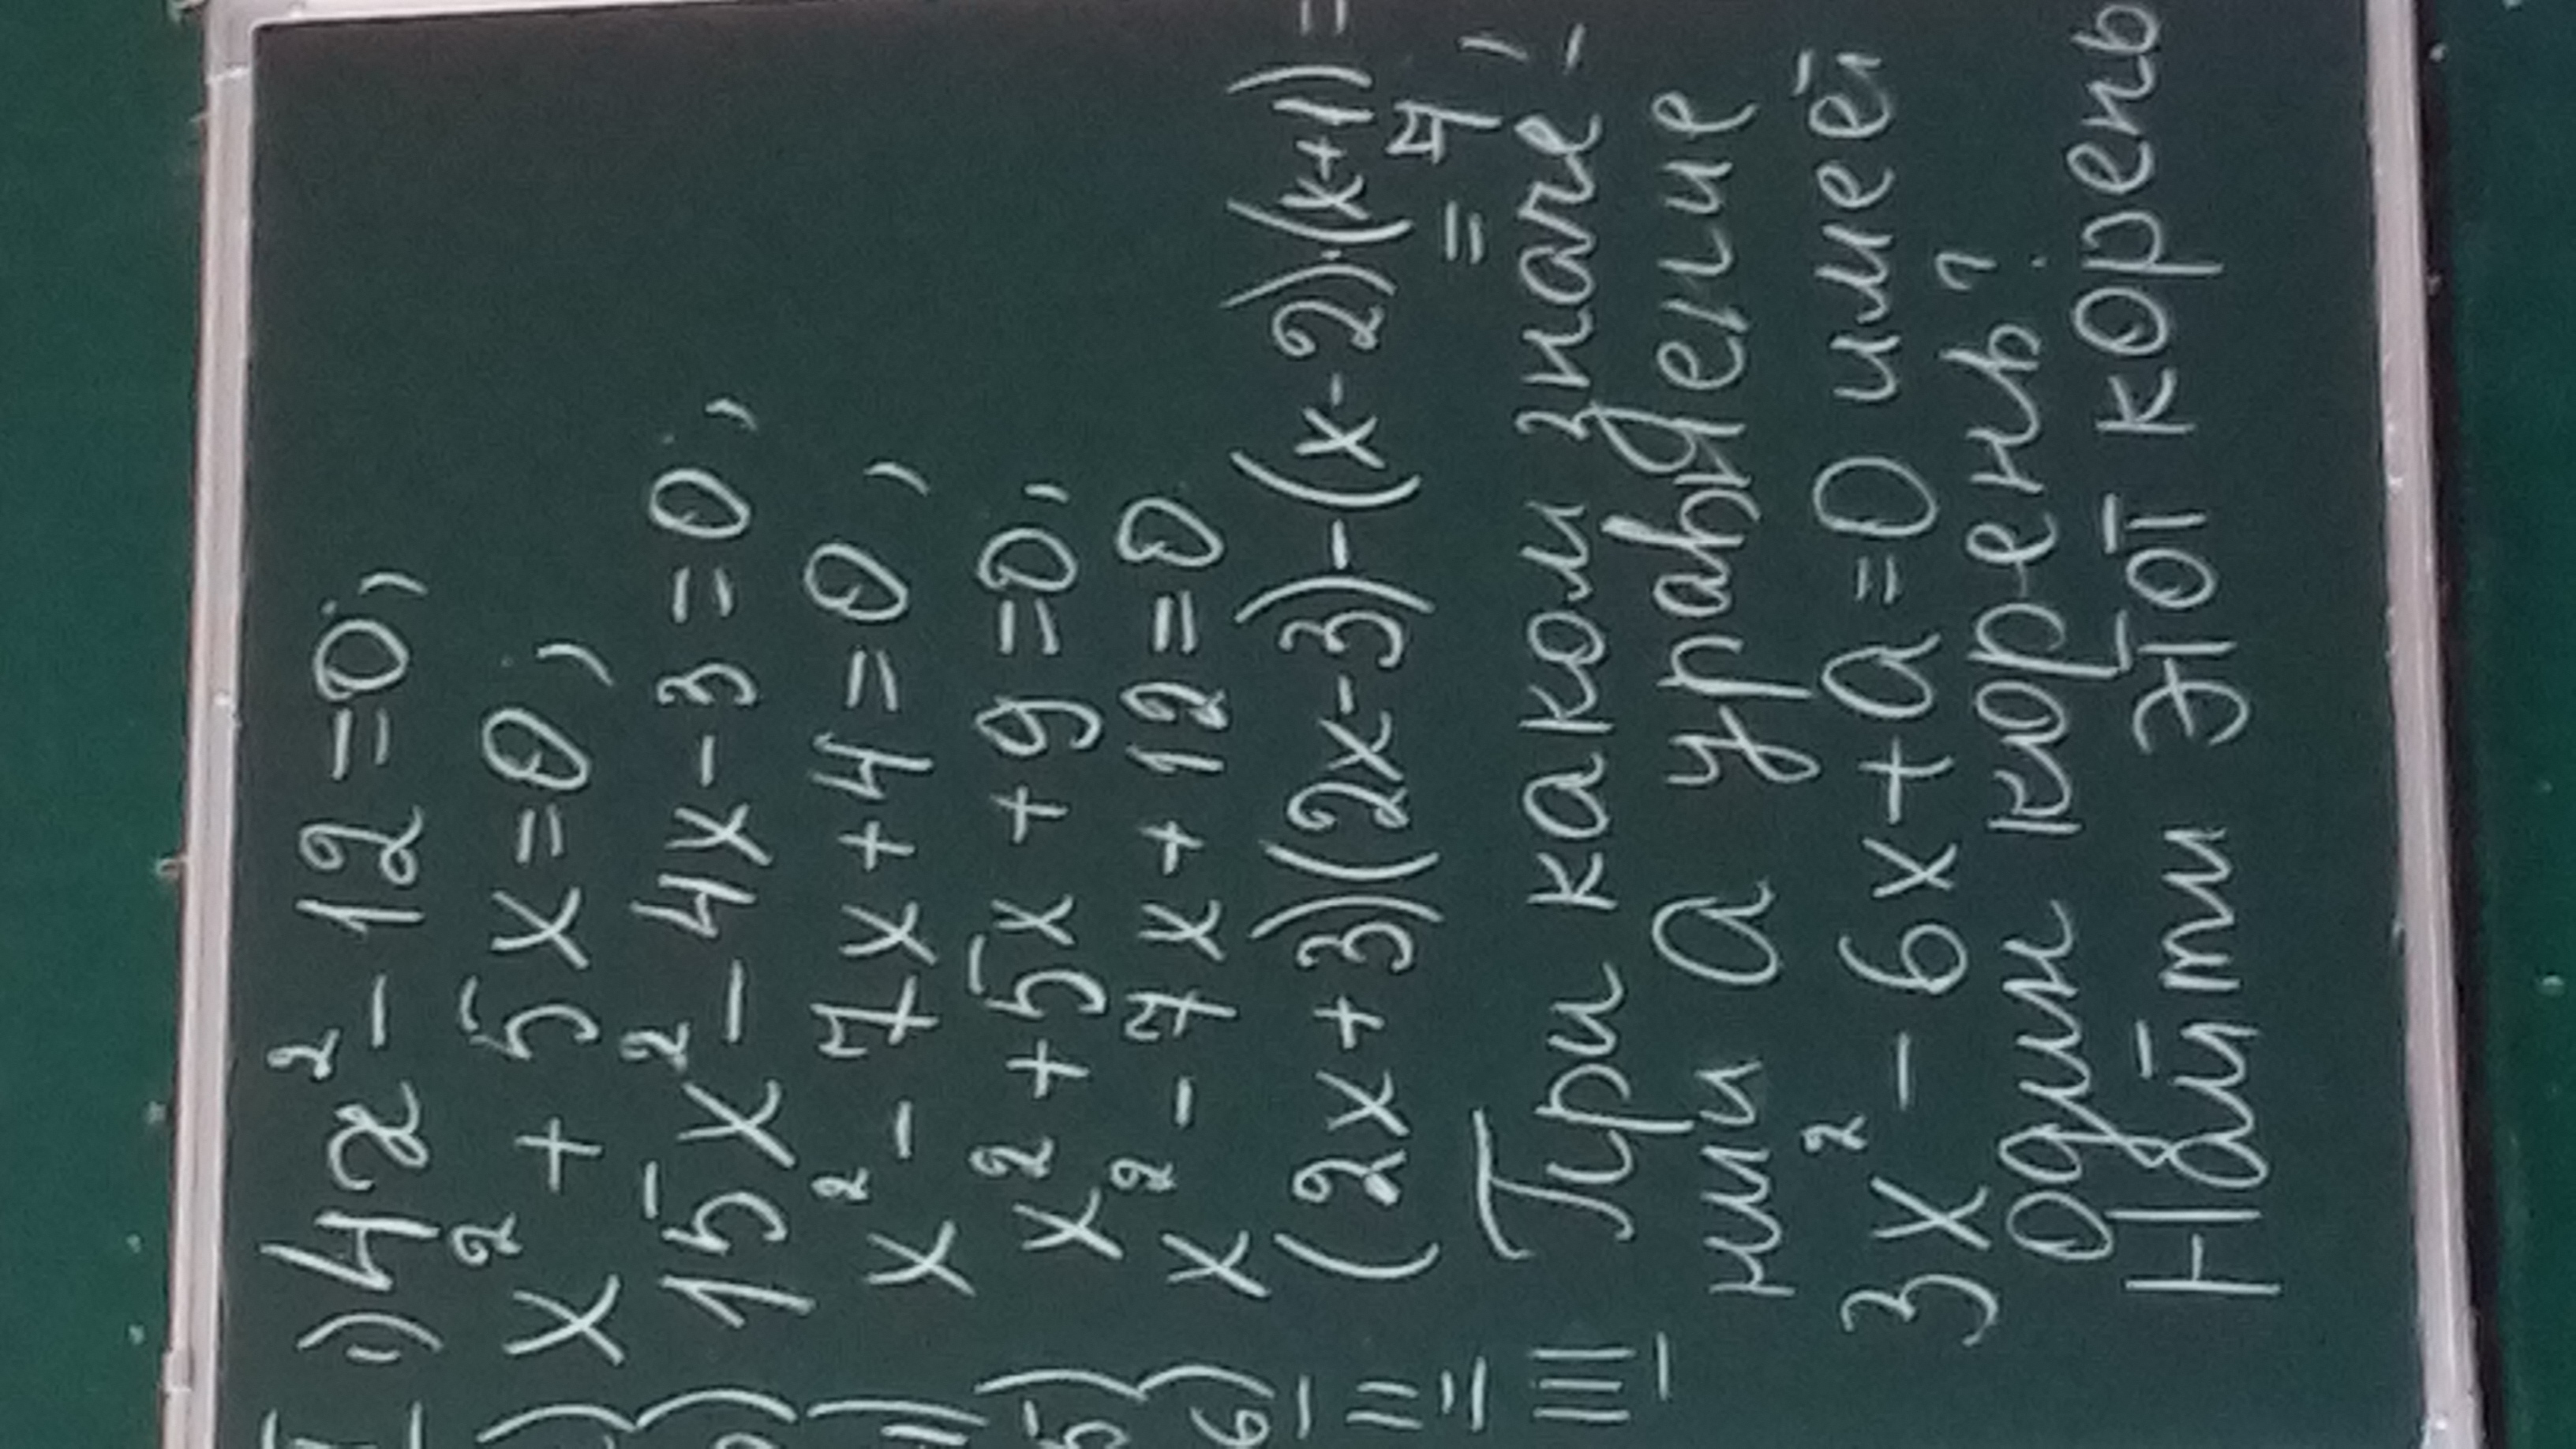 I 1) 4x² - 12 = 0,
) x² + 5x = 0,
) 15x² - 4x - 3 = 0,
4) x² - 7x + 4 = 0,
5) x² + 5x + 9 = 0,
6) x² - 7x + 12 = 0
II (2x + 3)(2x - 3) - (x - 2)·(x + 1) =
= 4,
III При каком значе-
нии а уравнение
3x² - 6x + a = 0 имеет
один корень?
Найти этот корень